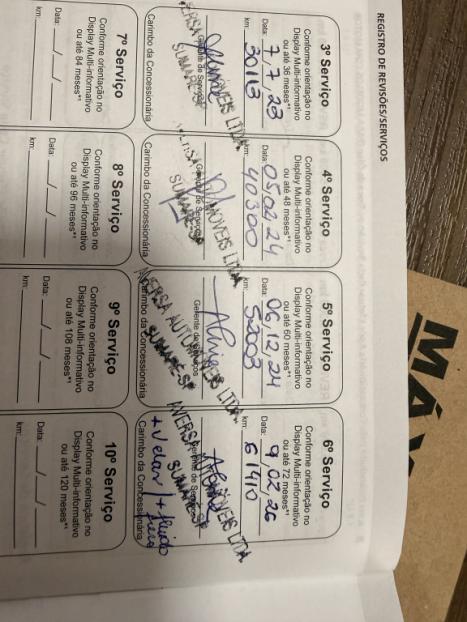 REGISTRO DE REVISÕES/SERVIÇOS
3º Serviço
Conforme orientação no
Display Multi-informativo
ou até 36 meses*¹
Data: 7, 7, 23
km: 30113
Gerente de Serviços
SUMARÉ-SP
Carimbo da Concessionária
4º Serviço
Conforme orientação no
Display Multi-informativo
ou até 48 meses*¹
Data: 05, 02, 24
km: 40300
Gerente de Serviços
SUMARÉ-SP
Carimbo da Concessionária
5º Serviço
Conforme orientação no
Display Multi-informativo
ou até 60 meses*¹
Data: 06, 12, 24
km: 52003
AVERSA AUTOMÓVEIS LTDA
Gerente de Serviços
SUMARÉ-SP
Carimbo da Concessionária
6º Serviço
Conforme orientação no
Display Multi-informativo
ou até 72 meses*¹
Data: 9, 02, 26
km: 61410
AVERSA AUTOMÓVEIS LTDA
Gerente de Serviços
SUMARÉ-SP
+ Velas / + fluido
freio
Carimbo da Concessionária
7º Serviço
Conforme orientação no
Display Multi-informativo
ou até 84 meses*¹
Data: / /
km:
8º Serviço
Conforme orientação no
Display Multi-informativo
ou até 96 meses*¹
Data: / /
km:
9º Serviço
Conforme orientação no
Display Multi-informativo
ou até 108 meses*¹
Data: / /
km:
10º Serviço
Conforme orientação no
Display Multi-informativo
ou até 120 meses*¹
Data: / /
km: